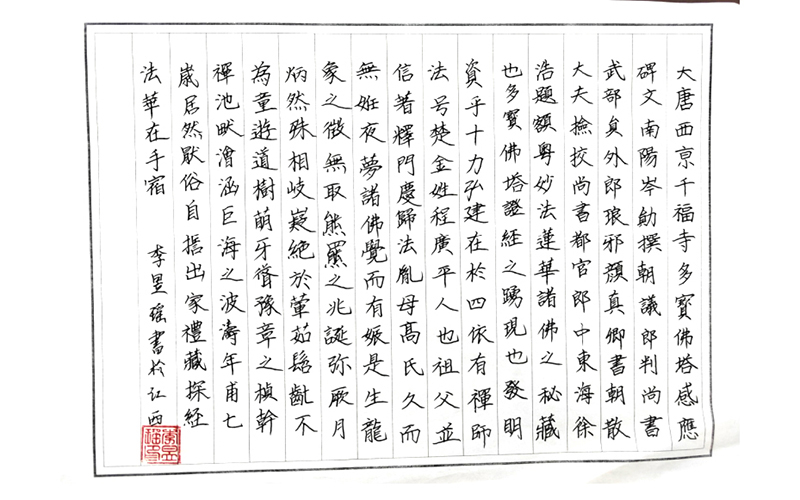 大唐西京千福寺多寳佛塔感應
碑文南陽岑勛撰朝議郎判尚書
武部員外郎琅邪顔真卿書朝散
大夫撿挍尚書都官郎中東海徐
浩題額粤妙法蓮華諸佛之秘藏
也多寳佛塔證經之踴現也發明
資乎十力弘建在於四依有禪師
法号楚金姓程廣平人也祖父並
信著釋門慶歸法胤母髙氏久而
無姙夜夢諸佛覺而有娠是生龍
象之徵無取熊羆之兆誕弥厥月
炳然殊相岐嶷絶於葷茹髫齓不
為童遊道樹萌牙聳豫章之楨幹
禪池畎澮涵巨海之波濤年甫七
歳居然厭俗自誓出家禮藏探經
法華在手宿 李昱瑶書於江西